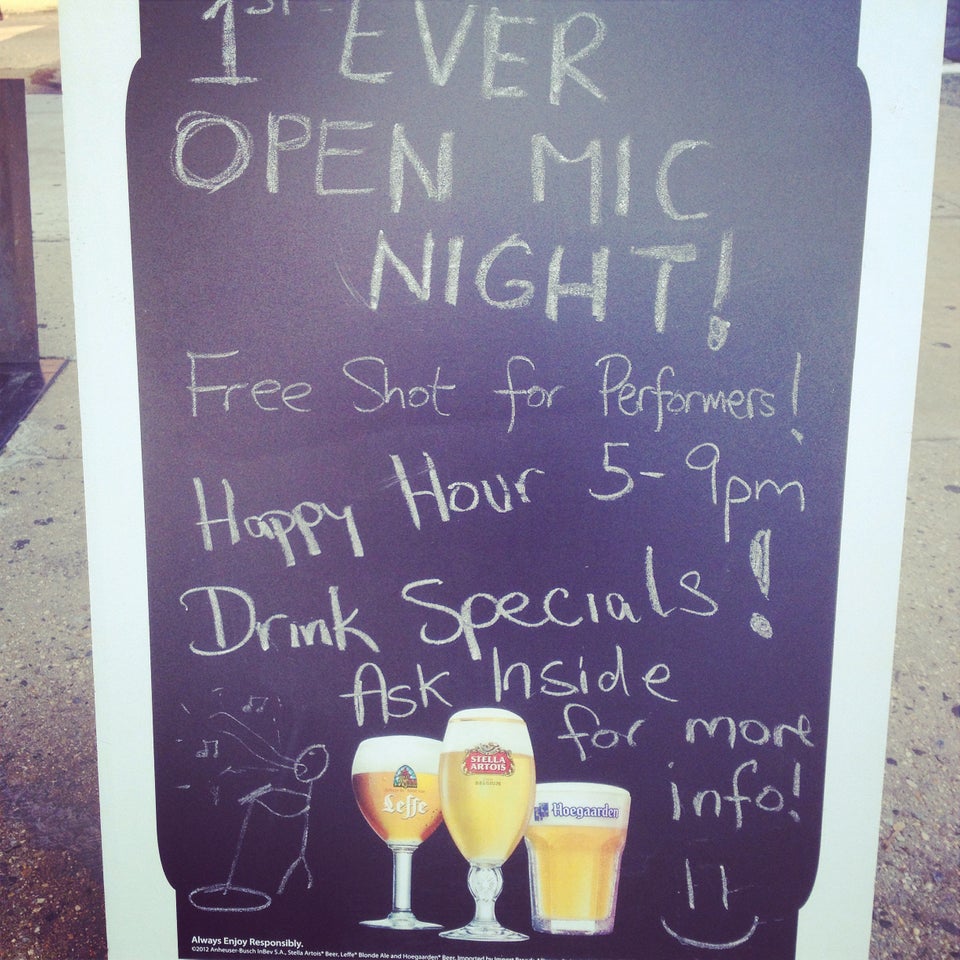 1ST EVER
OPEN MIC
NIGHT!
Free Shot for Performers!
Happy Hour 5-9pm
Drink Specials!
Ask Inside
for more
info!
Leffe
STELLA
ARTOIS
BELGIUM
Hoegaarden
Always Enjoy Responsibly.
©2012 Anheuser-Busch InBev S.A., Stella Artois® Beer, Leffe® Blonde Ale and Hoegaarden® Beer, Imported by Import